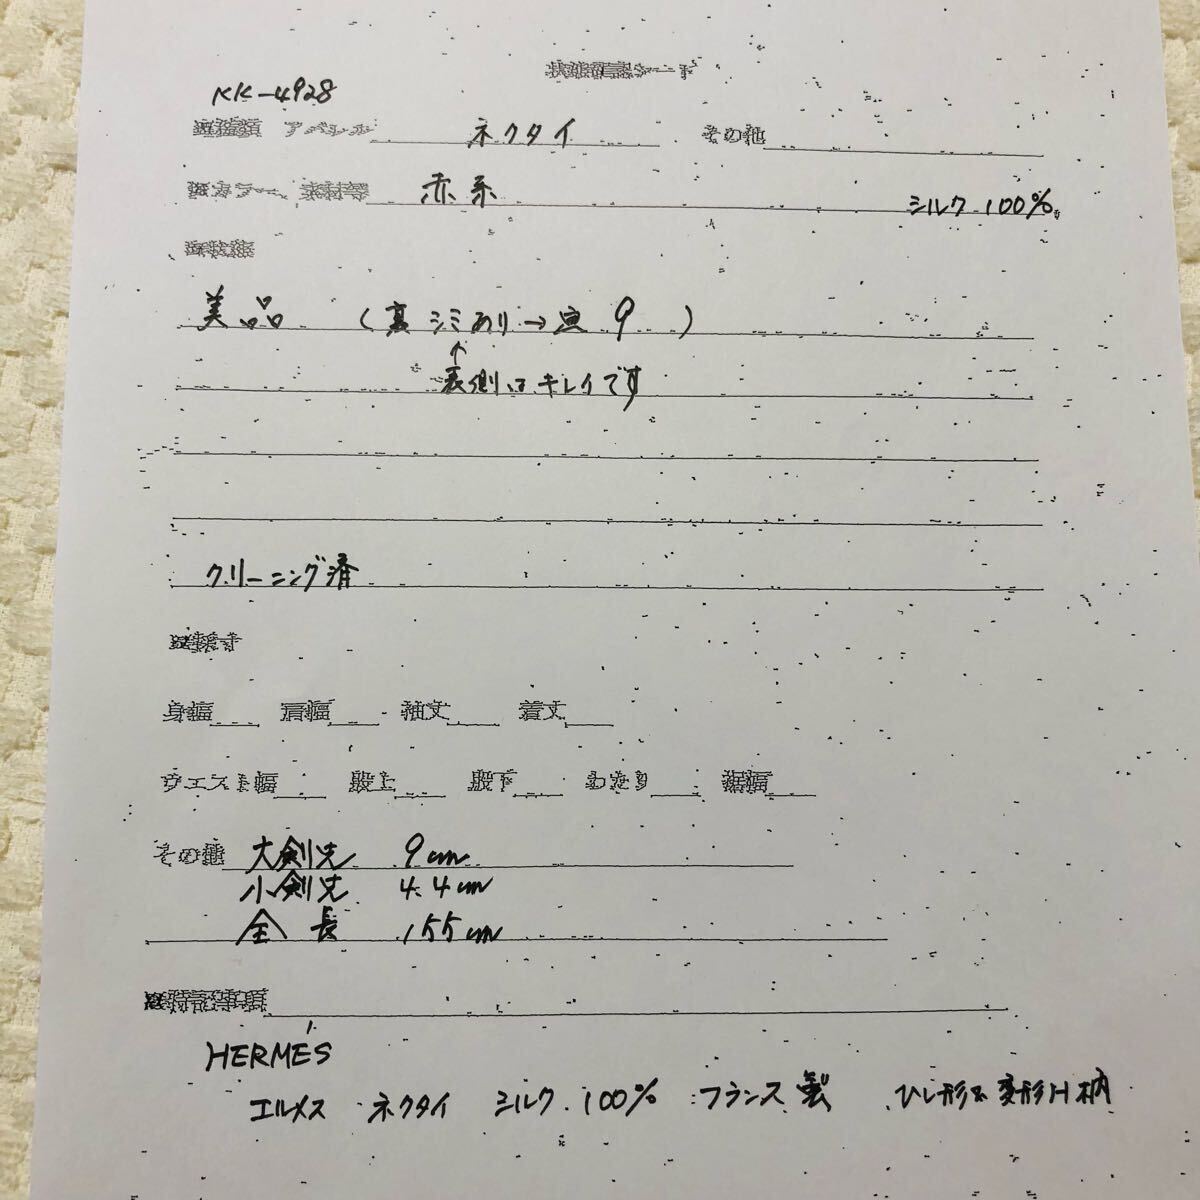 状態確認シート
KK-4928
アパレル ネクタイ その他
カラー、素材等 赤系 シルク 100%
状態
美品 (裏 シミあり→ 9 )
↑
表側はキレイです
クリーニング済
身幅 肩幅 袖丈 着丈
ウエスト幅 股上 股下 わたり 裾幅
その他 大剣先 9cm
小剣先 4.4cm
全長 155cm
特記事項
HERMÈS
エルメス ネクタイ シルク 100% フランス製 ひし形& 変形H柄